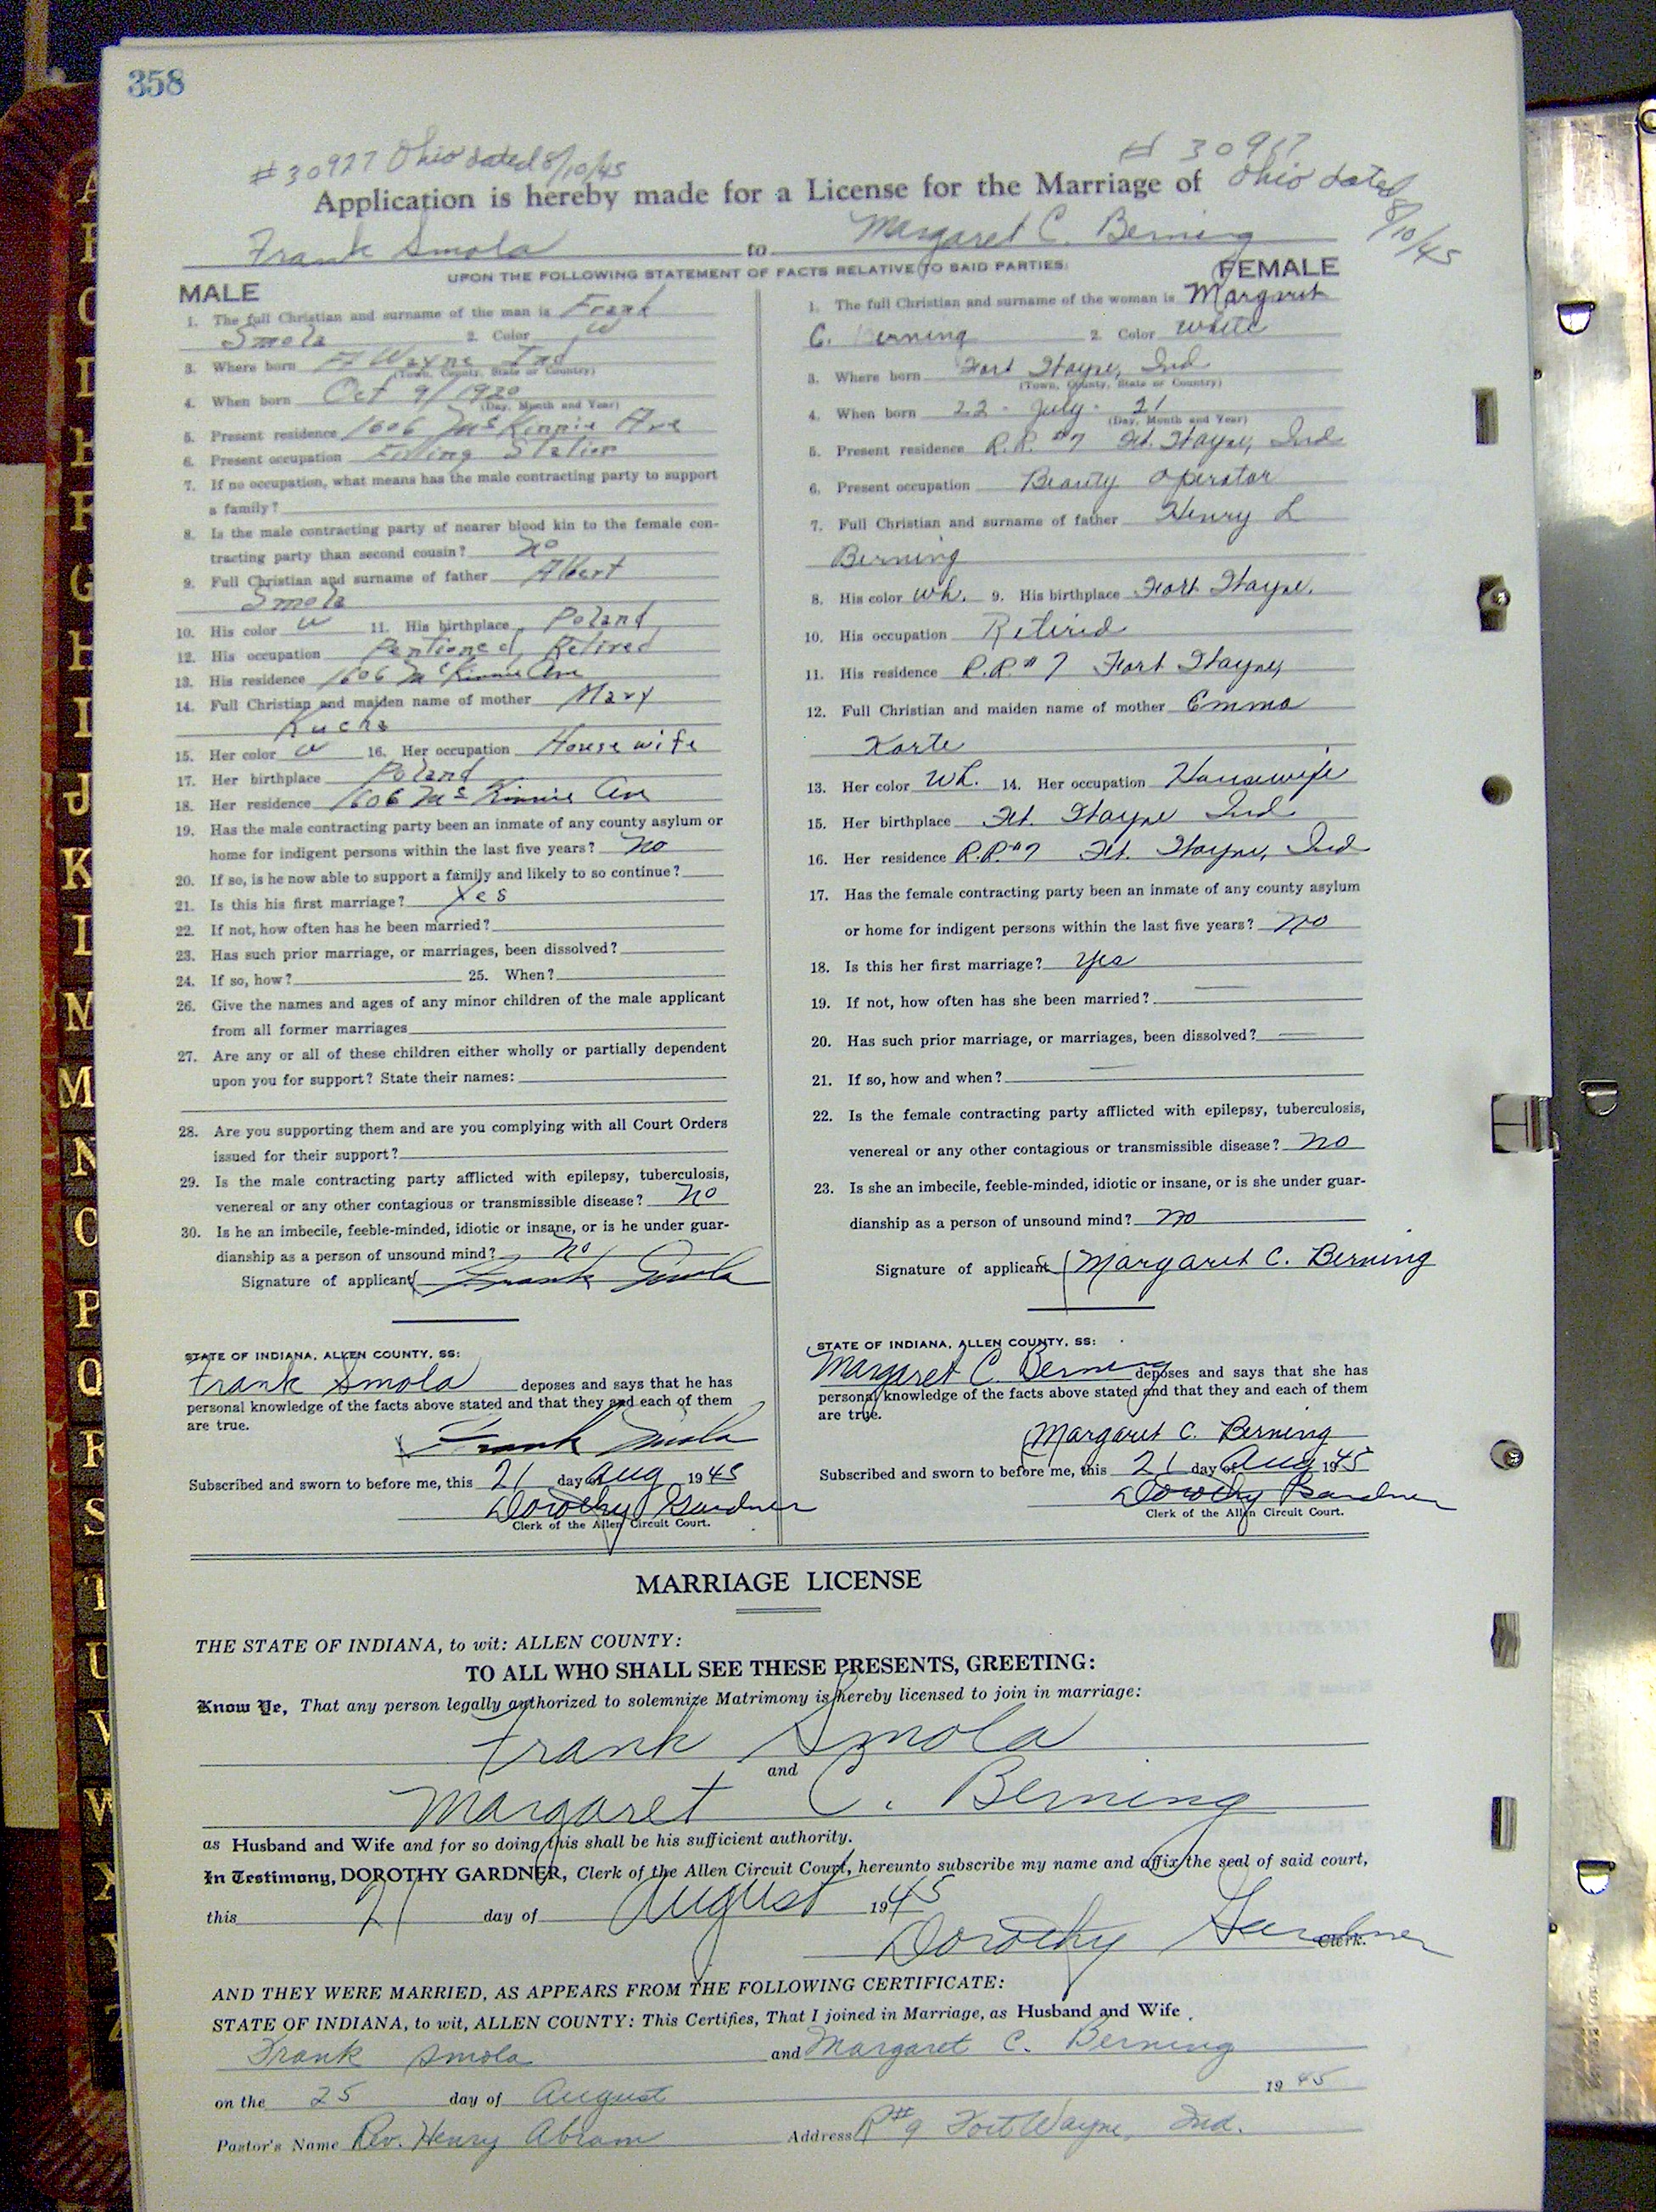 358
# 30927 Ohio dated 8/10/45
# 30917 Ohio dated 8/10/45
Application is hereby made for a License for the Marriage of
Frank Smola to Margaret C. Berning
UPON THE FOLLOWING STATEMENT OF FACTS RELATIVE TO SAID PARTIES:
MALE
1. The full Christian and surname of the man is Frank
Smola 2. Color W
3. Where born Ft Wayne Ind
(Town, County, State or Country)
4. When born Oct 9/1920
(Day, Month and Year)
5. Present residence 1606 McKinnie Ave
6. Present occupation Filling Station
7. If no occupation, what means has the male contracting party to support
a family?
8. Is the male contracting party of nearer blood kin to the female con-
tracting party than second cousin? No
9. Full Christian and surname of father Albert
Smola
10. His color W 11. His birthplace Poland
12. His occupation Pentioned, Retired
13. His residence 1606 McKinnie Ave
14. Full Christian and maiden name of mother Mary
Kucha
15. Her color W 16. Her occupation Housewife
17. Her birthplace Poland
18. Her residence 1606 McKinnie Ave
19. Has the male contracting party been an inmate of any county asylum or
home for indigent persons within the last five years? No
20. If so, is he now able to support a family and likely to so continue?
21. Is this his first marriage? Yes
22. If not, how often has he been married?
23. Has such prior marriage, or marriages, been dissolved?
24. If so, how? 25. When?
26. Give the names and ages of any minor children of the male applicant
from all former marriages
27. Are any or all of these children either wholly or partially dependent
upon you for support? State their names:
28. Are you supporting them and are you complying with all Court Orders
issued for their support?
29. Is the male contracting party afflicted with epilepsy, tuberculosis,
venereal or any other contagious or transmissible disease? No
30. Is he an imbecile, feeble-minded, idiotic or insane, or is he under guar-
dianship as a person of unsound mind? No
Signature of applicant Frank Smola
STATE OF INDIANA, ALLEN COUNTY, SS:
Frank Smola deposes and says that he has
personal knowledge of the facts above stated and that they and each of them
are true.
Frank Smola
Subscribed and sworn to before me, this 21 day of Aug 1945
Dorothy Gardner
Clerk of the Allen Circuit Court.
FEMALE
1. The full Christian and surname of the woman is Margaret
C. Berning 2. Color White
3. Where born Fort Wayne, Ind
(Town, County, State or Country)
4. When born 22 - July - 21
(Day, Month and Year)
5. Present residence R.R. #7 Ft. Wayne, Ind
6. Present occupation Beauty Operator
7. Full Christian and surname of father Henry L
Berning
8. His color Wh. 9. His birthplace Fort Wayne.
10. His occupation Retired
11. His residence R.R. #7 Fort Wayne,
12. Full Christian and maiden name of mother Emma
Korte
13. Her color Wh. 14. Her occupation Housewife
15. Her birthplace Ft. Wayne Ind
16. Her residence R.R. #7 Ft. Wayne, Ind
17. Has the female contracting party been an inmate of any county asylum
or home for indigent persons within the last five years? No
18. Is this her first marriage? Yes
19. If not, how often has she been married? —
20. Has such prior marriage, or marriages, been dissolved? —
21. If so, how and when? —
22. Is the female contracting party afflicted with epilepsy, tuberculosis,
venereal or any other contagious or transmissible disease? No
23. Is she an imbecile, feeble-minded, idiotic or insane, or is she under guar-
dianship as a person of unsound mind? No
Signature of applicant Margaret C. Berning
STATE OF INDIANA, ALLEN COUNTY, SS:
Margaret C. Berning deposes and says that she has
personal knowledge of the facts above stated and that they and each of them
are true.
Margaret C. Berning
Subscribed and sworn to before me, this 21 day of Aug 1945
Dorothy Gardner
Clerk of the Allen Circuit Court.
MARRIAGE LICENSE
THE STATE OF INDIANA, to wit: ALLEN COUNTY:
TO ALL WHO SHALL SEE THESE PRESENTS, GREETING:
Know Ye, That any person legally authorized to solemnize Matrimony is hereby licensed to join in marriage:
Frank Smola
and
Margaret C. Berning
as Husband and Wife and for so doing this shall be his sufficient authority.
In Testimony, DOROTHY GARDNER, Clerk of the Allen Circuit Court, hereunto subscribe my name and affix the seal of said court,
this 21 day of August 1945
Dorothy Gardner
Clerk.
AND THEY WERE MARRIED, AS APPEARS FROM THE FOLLOWING CERTIFICATE:
STATE OF INDIANA, to wit, ALLEN COUNTY: This Certifies, That I joined in Marriage, as Husband and Wife
Frank Smola and Margaret C. Berning
on the 25 day of August 1945
Pastor's Name Rev. Henry Abram Address R#9 Fort Wayne, Ind.